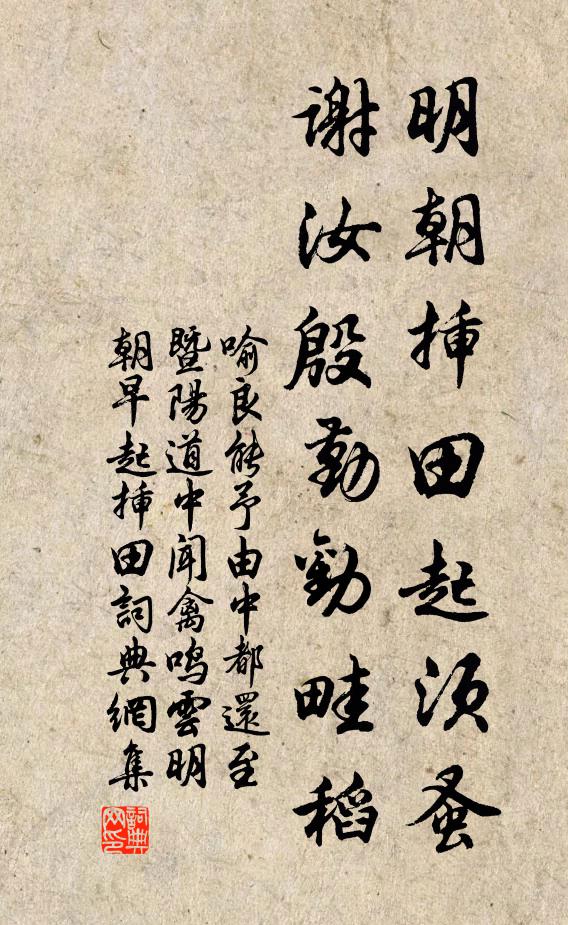 明朝揷田起須蚤
謝汝殷勤勸畦稻
喻良能予由中都還至
暨陽道中聞禽鳴雲明
朝早起揷田詞典網集
詞典網印